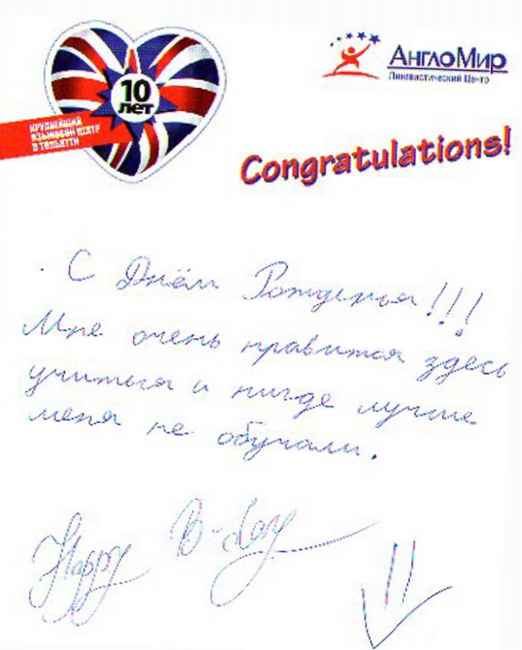 10
лет
КРУПНЕЙШИЙ
ЯЗЫКОВОЙ ЦЕНТР
В ТОЛЬЯТТИ
АнглоМир
Лингвистический Центр
Congratulations!
С Днём Рожденья!!!
Мне очень нравится здесь
учиться и нигде лучше
меня не обучали.
Happy B-day